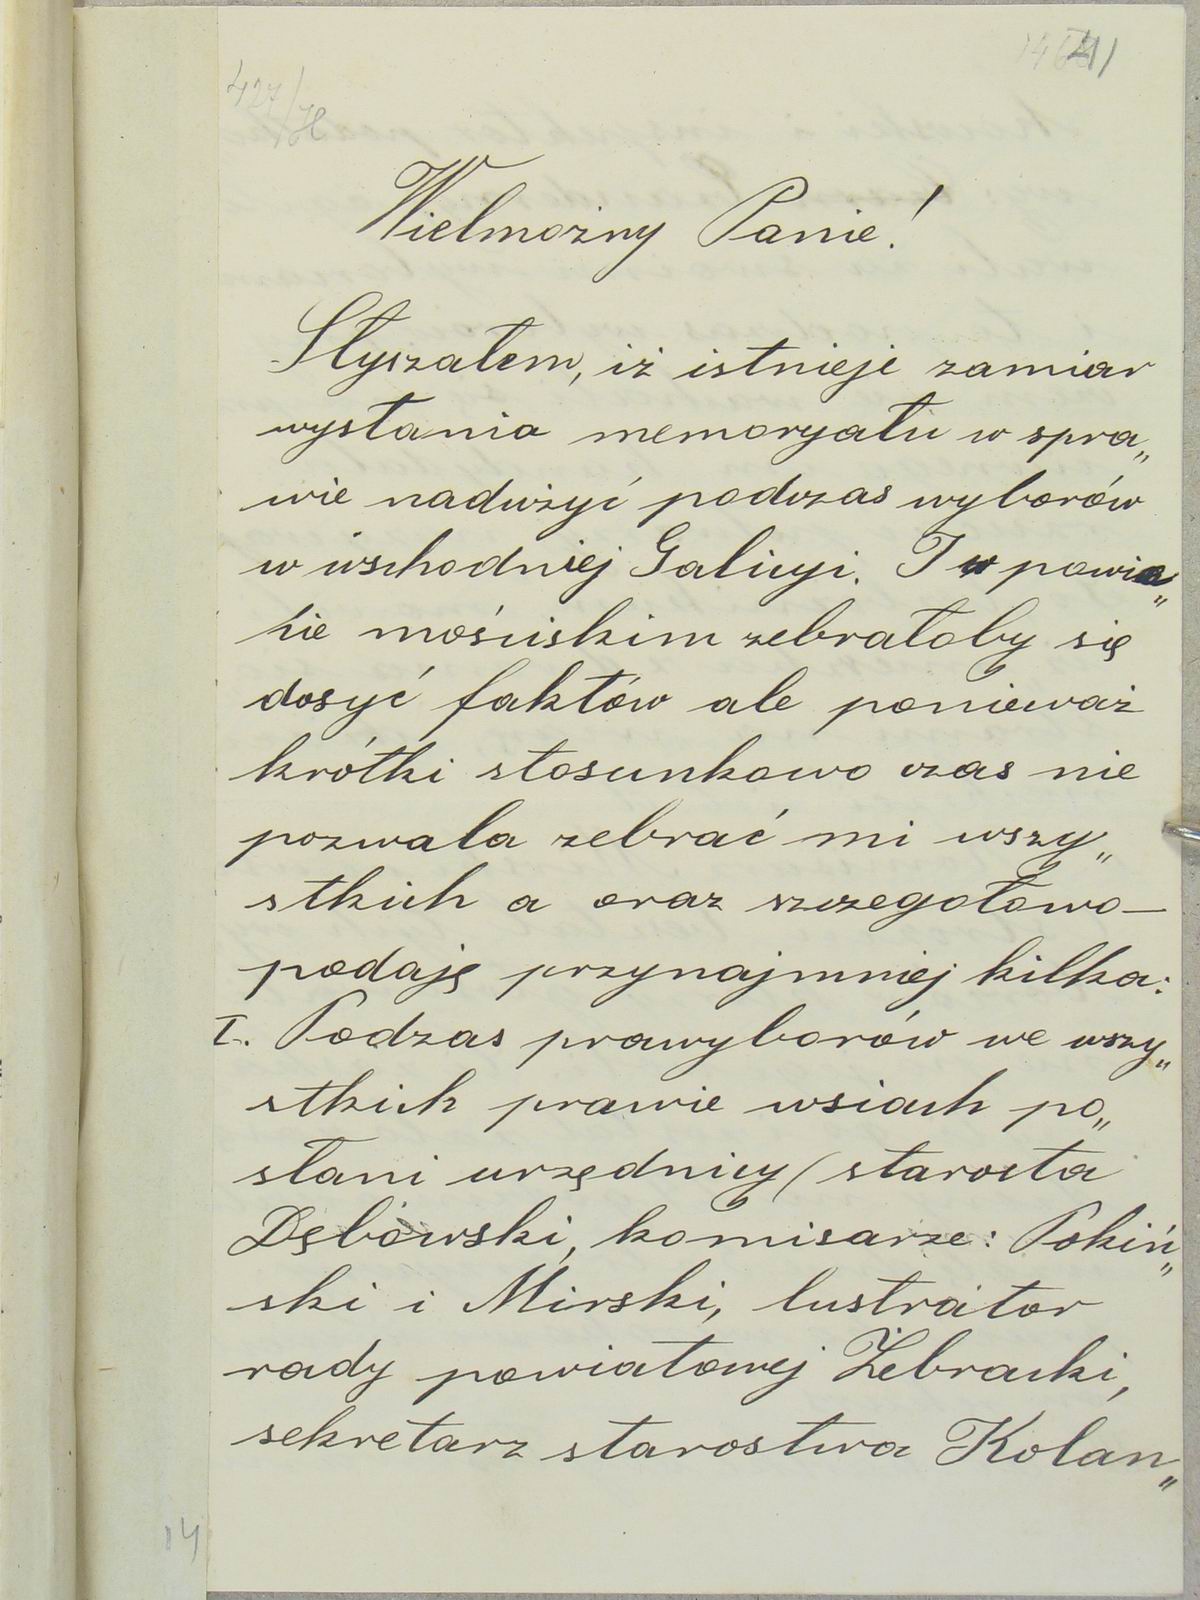 427/H
41
Wielmożny Panie!
Słyszałem, iż istnieje zamiar
wysłania memoryału w spra„
wie nadużyć podczas wyborów
w wschodniej Galicyi. I w powie„
cie mościskim zebrałoby się
dosyć faktów ale ponieważ
krótki stosunkowo czas nie
pozwala zebrać mi wszy„
stkich a oraz szczegołowo—
podaję przynajmniej kilka:
I. Podzas prawyborów we wszy„
stkich prawie wsiach po„
słani urzędnicy (starosta
Dębowski, komisarze: Pokiń„
ski i Mirski, lustrator
rady powiatowej Żebracki,
sekretarz starostwa Kolan„
14